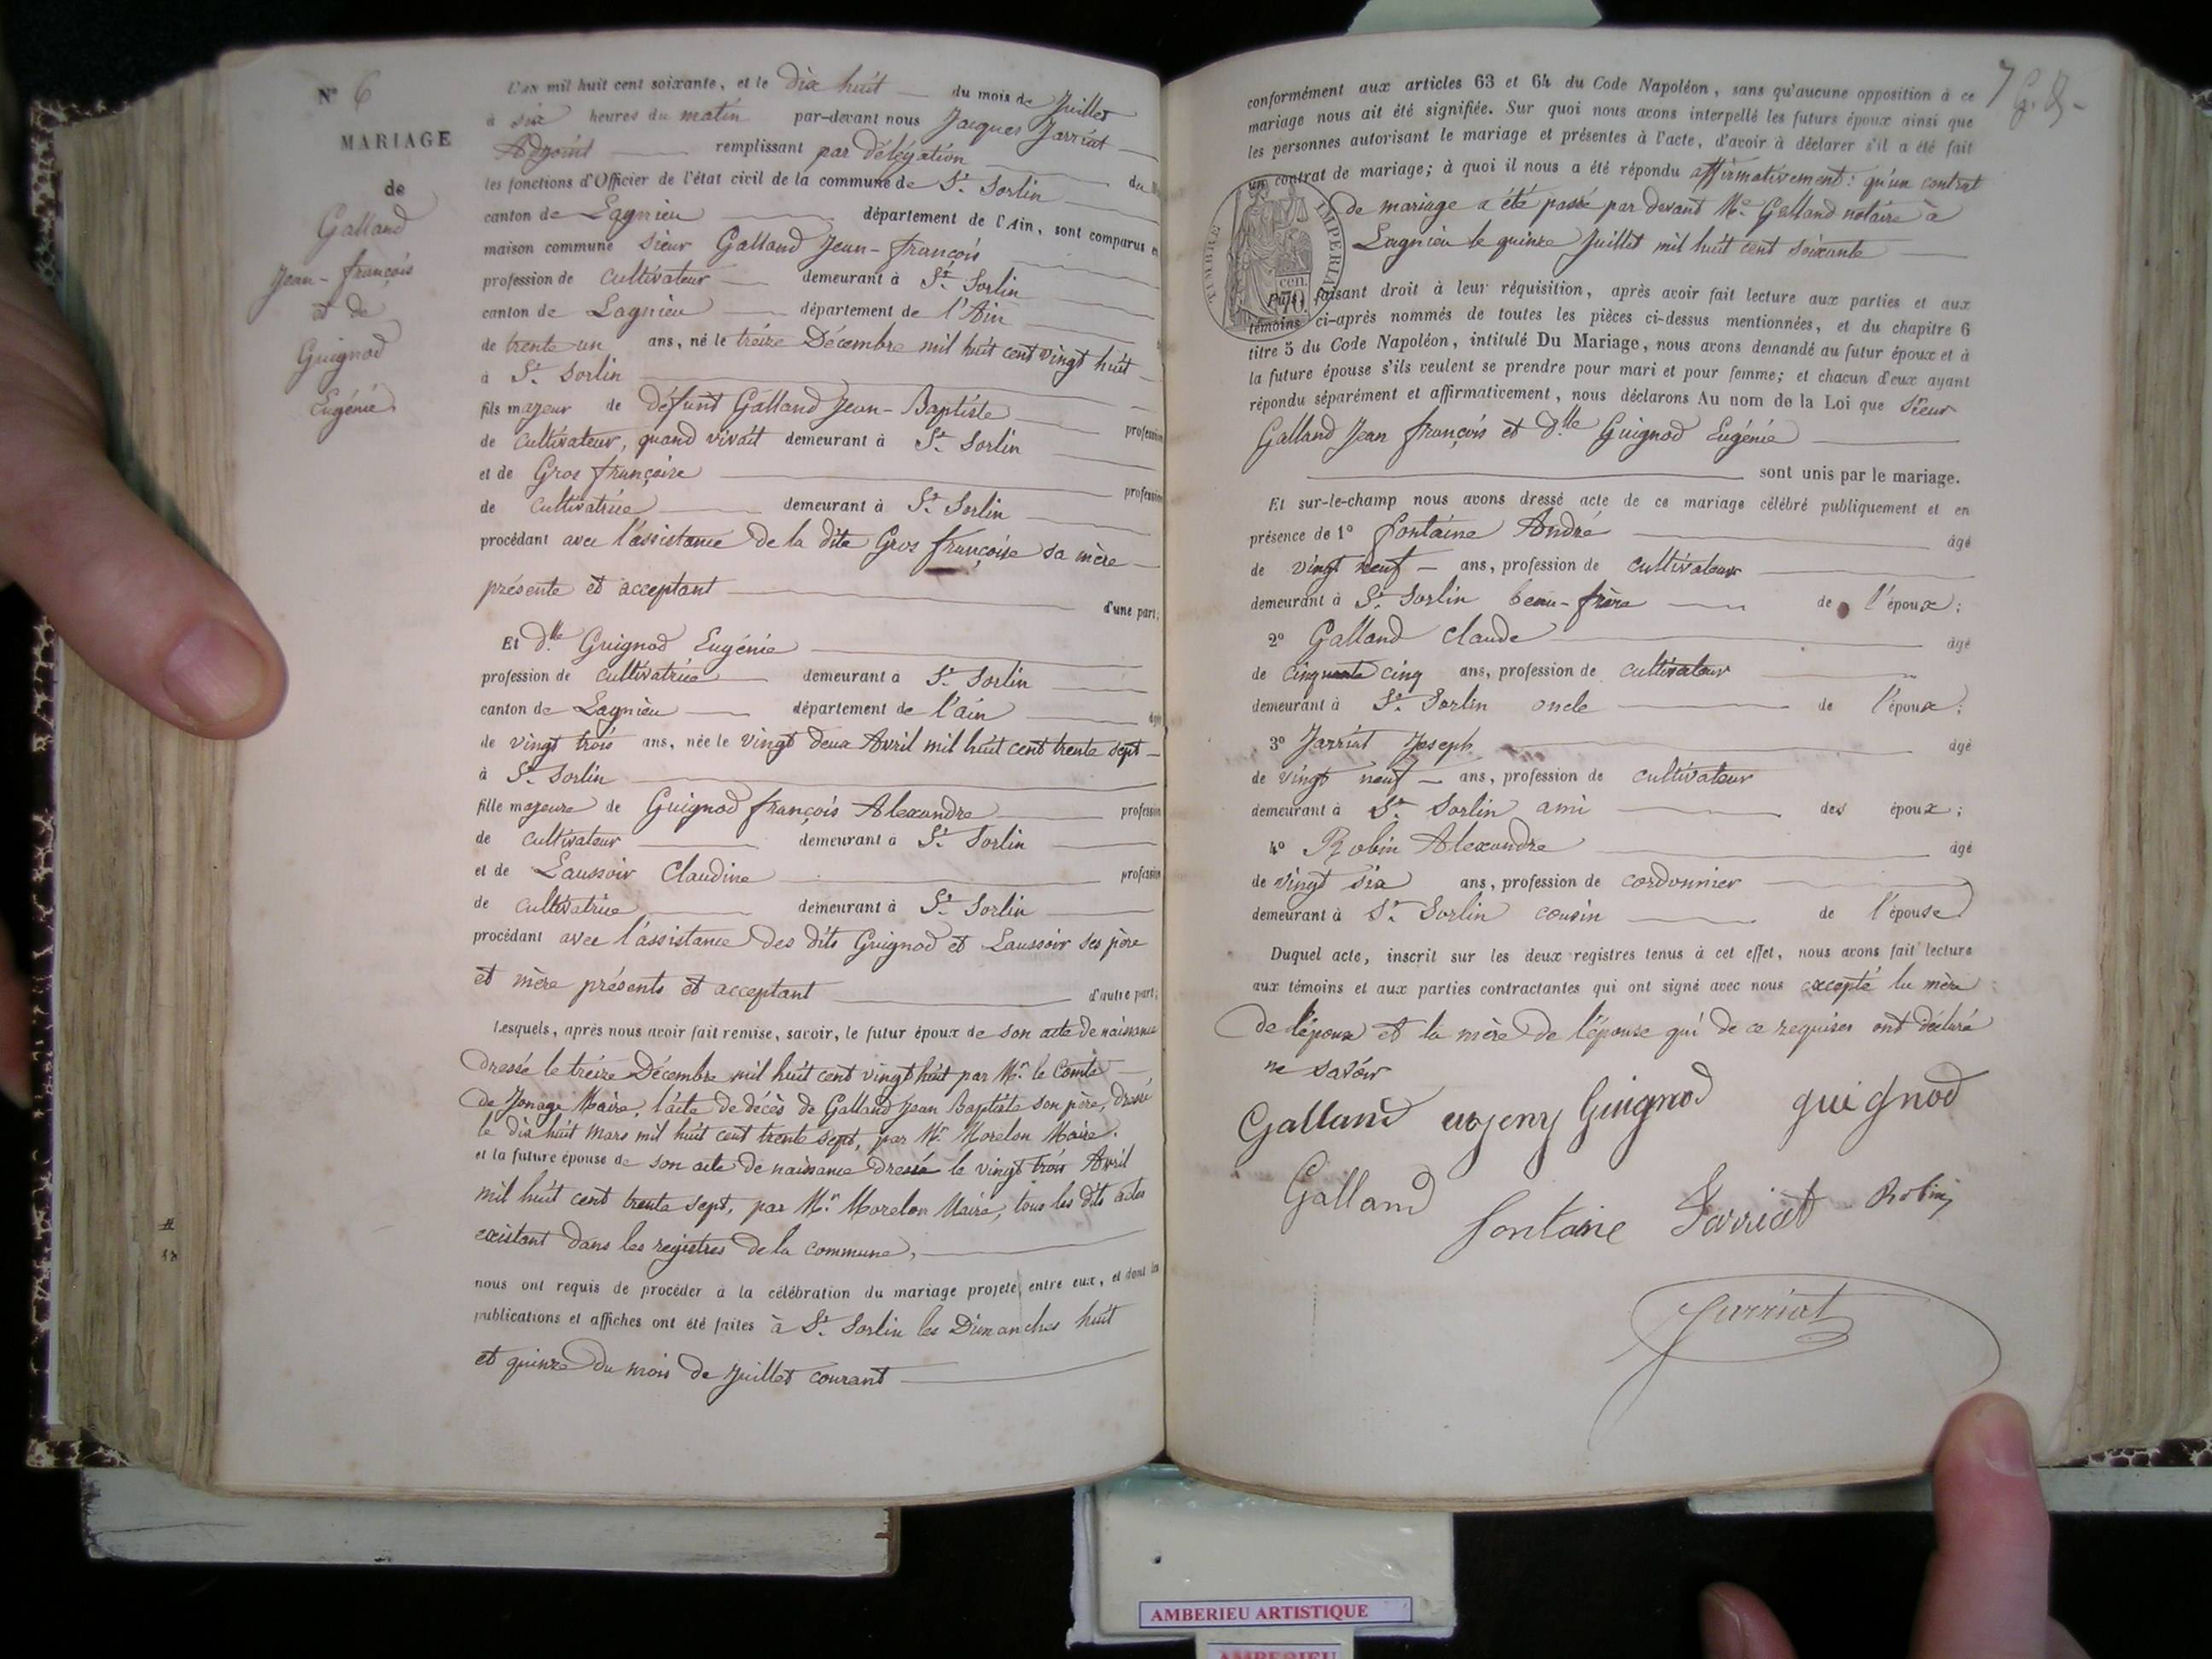 N° 6
MARIAGE
de
Galland
Jean-françois
et de
Guignod
Eugénie
L'an mil huit cent soixante, et le dix huit du mois de Juillet
à six heures du matin par-devant nous Jacques Jarriat
Adjoint remplissant par délégation
les fonctions d'Officier de l'état civil de la commune de St. Sorlin
canton de Lagnieu département de l'Ain, sont comparus en
maison commune sieur Galland Jean-françois
profession de cultivateur demeurant à St. Sorlin
canton de Lagnieu département de l'Ain
de trente un ans, né le treize Décembre mil huit cent vingt huit
à St. Sorlin
fils majeur de défunt Galland Jean-Baptiste profession
de cultivateur, quand vivait demeurant à St. Sorlin
et de Gros françoise profession
de cultivatrice demeurant à St. Sorlin
procédant avec l'assistance de la dite Gros françoise sa mère
présente et acceptant d'une part;
Et Dlle Guignod Eugénie
profession de cultivatrice demeurant à St. Sorlin
canton de Lagnieu département de l'ain
de vingt trois ans, née le vingt deux Avril mil huit cent trente sept
à St. Sorlin
fille majeure de Guignod françois Alexandre profession
de cultivateur demeurant à St. Sorlin
et de Laussoir Claudine profession
de cultivatrice demeurant à St. Sorlin
procédant avec l'assistance des dits Guignod et Laussoir ses père
et mère présents et acceptant d'autre part;
Lesquels, après nous avoir fait remise, savoir, le futur époux de son acte de naissance
dressé le treize Décembre mil huit cent vingt huit par Mr. le Comte
de Jonage Maire, l'acte de décès de Galland Jean Baptiste son père, dressé
le dix huit mars mil huit cent trente sept, par Mr. Morelon Maire.
et la future épouse de son acte de naissance dressé le vingt trois Avril
mil huit cent trente sept, par Mr. Morelon Maire, tous les dits actes
existant dans les registres de la commune,
nous ont requis de procéder à la célébration du mariage projeté entre eux, et dont les
publications et affiches ont été faites à St. Sorlin les Dimanches huit
et quinze du mois de Juillet courant
7
conformément aux articles 63 et 64 du Code Napoléon, sans qu'aucune opposition à ce
mariage nous ait été signifiée. Sur quoi nous avons interpellé les futurs époux ainsi que
les personnes autorisant le mariage et présentes à l'acte, d'avoir à déclarer s'il a été fait
un contrat de mariage; à quoi il nous a été répondu affirmativement: qu'un contrat
de mariage a été passé par devant Me. Galland notaire à
Lagnieu le quinze Juillet mil huit cent soixante
TIMBRE IMPERIAL
cen.
70.
Puis, faisant droit à leur réquisition, après avoir fait lecture aux parties et aux
témoins ci-après nommés de toutes les pièces ci-dessus mentionnées, et du chapitre 6
titre 5 du Code Napoléon, intitulé Du Mariage, nous avons demandé au futur époux et à
la future épouse s'ils veulent se prendre pour mari et pour femme; et chacun d'eux ayant
répondu séparément et affirmativement, nous déclarons Au nom de la Loi que Sieur
Galland Jean françois et Dlle Guignod Eugénie
sont unis par le mariage.
Et sur-le-champ nous avons dressé acte de ce mariage célébré publiquement et en
présence de 1° fontaine André âgé
de vingt neuf ans, profession de cultivateur
demeurant à St. Sorlin beau-frère de l'époux;
2° Galland Claude âgé
de cinquante cinq ans, profession de cultivateur
demeurant à St. Sorlin oncle de l'époux;
3° Jarriat Joseph âgé
de vingt neuf ans, profession de cultivateur
demeurant à St. Sorlin ami des époux;
4° Robin Alexandre âgé
de vingt six ans, profession de cordonnier
demeurant à St. Sorlin cousin de l'épouse
Duquel acte, inscrit sur les deux registres tenus à cet effet, nous avons fait lecture
aux témoins et aux parties contractantes qui ont signé avec nous excepté la mère
de l'époux et la mère de l'épouse qui de ce requises ont déclaré
ne savoir
Galland eugeny Guignod guignod
Galland fontaine Jarriat Robin
Jarriat
AMBERIEU ARTISTIQUE
AMBERIEU